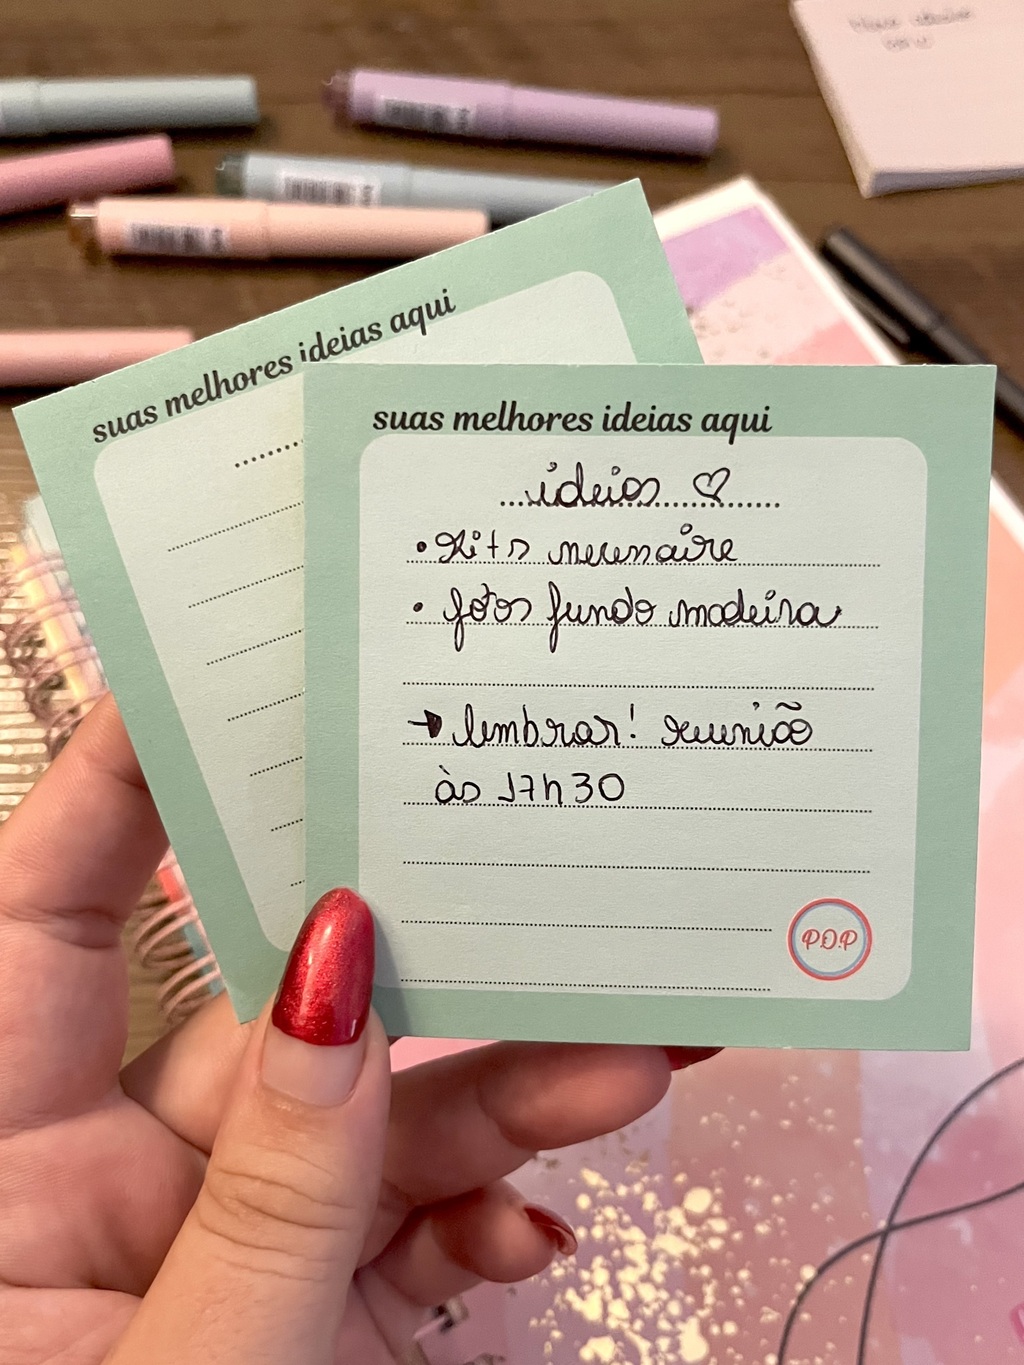 suas melhores ideias aqui
suas melhores ideias aqui
ideias ♡
• Kits necessaire
• fotos fundo madeira
→ lembrar! reunião
às 17h30
P.O.P